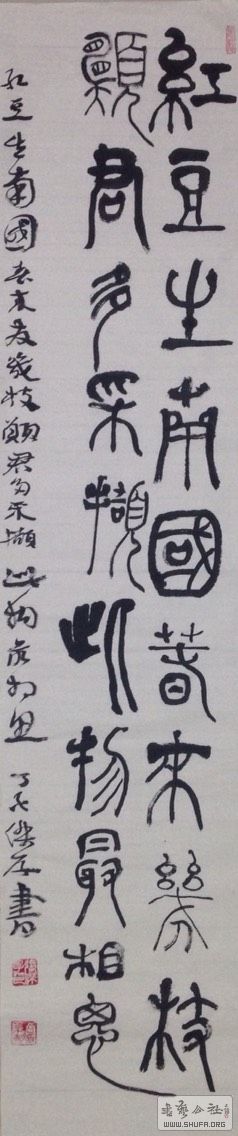 紅豆生南國春來幾枝
願君多采擷此物最相思
紅豆生南國春來發幾枝願君多采擷此物最相思 書
書藝公社
WWW.SHUFA.ORG